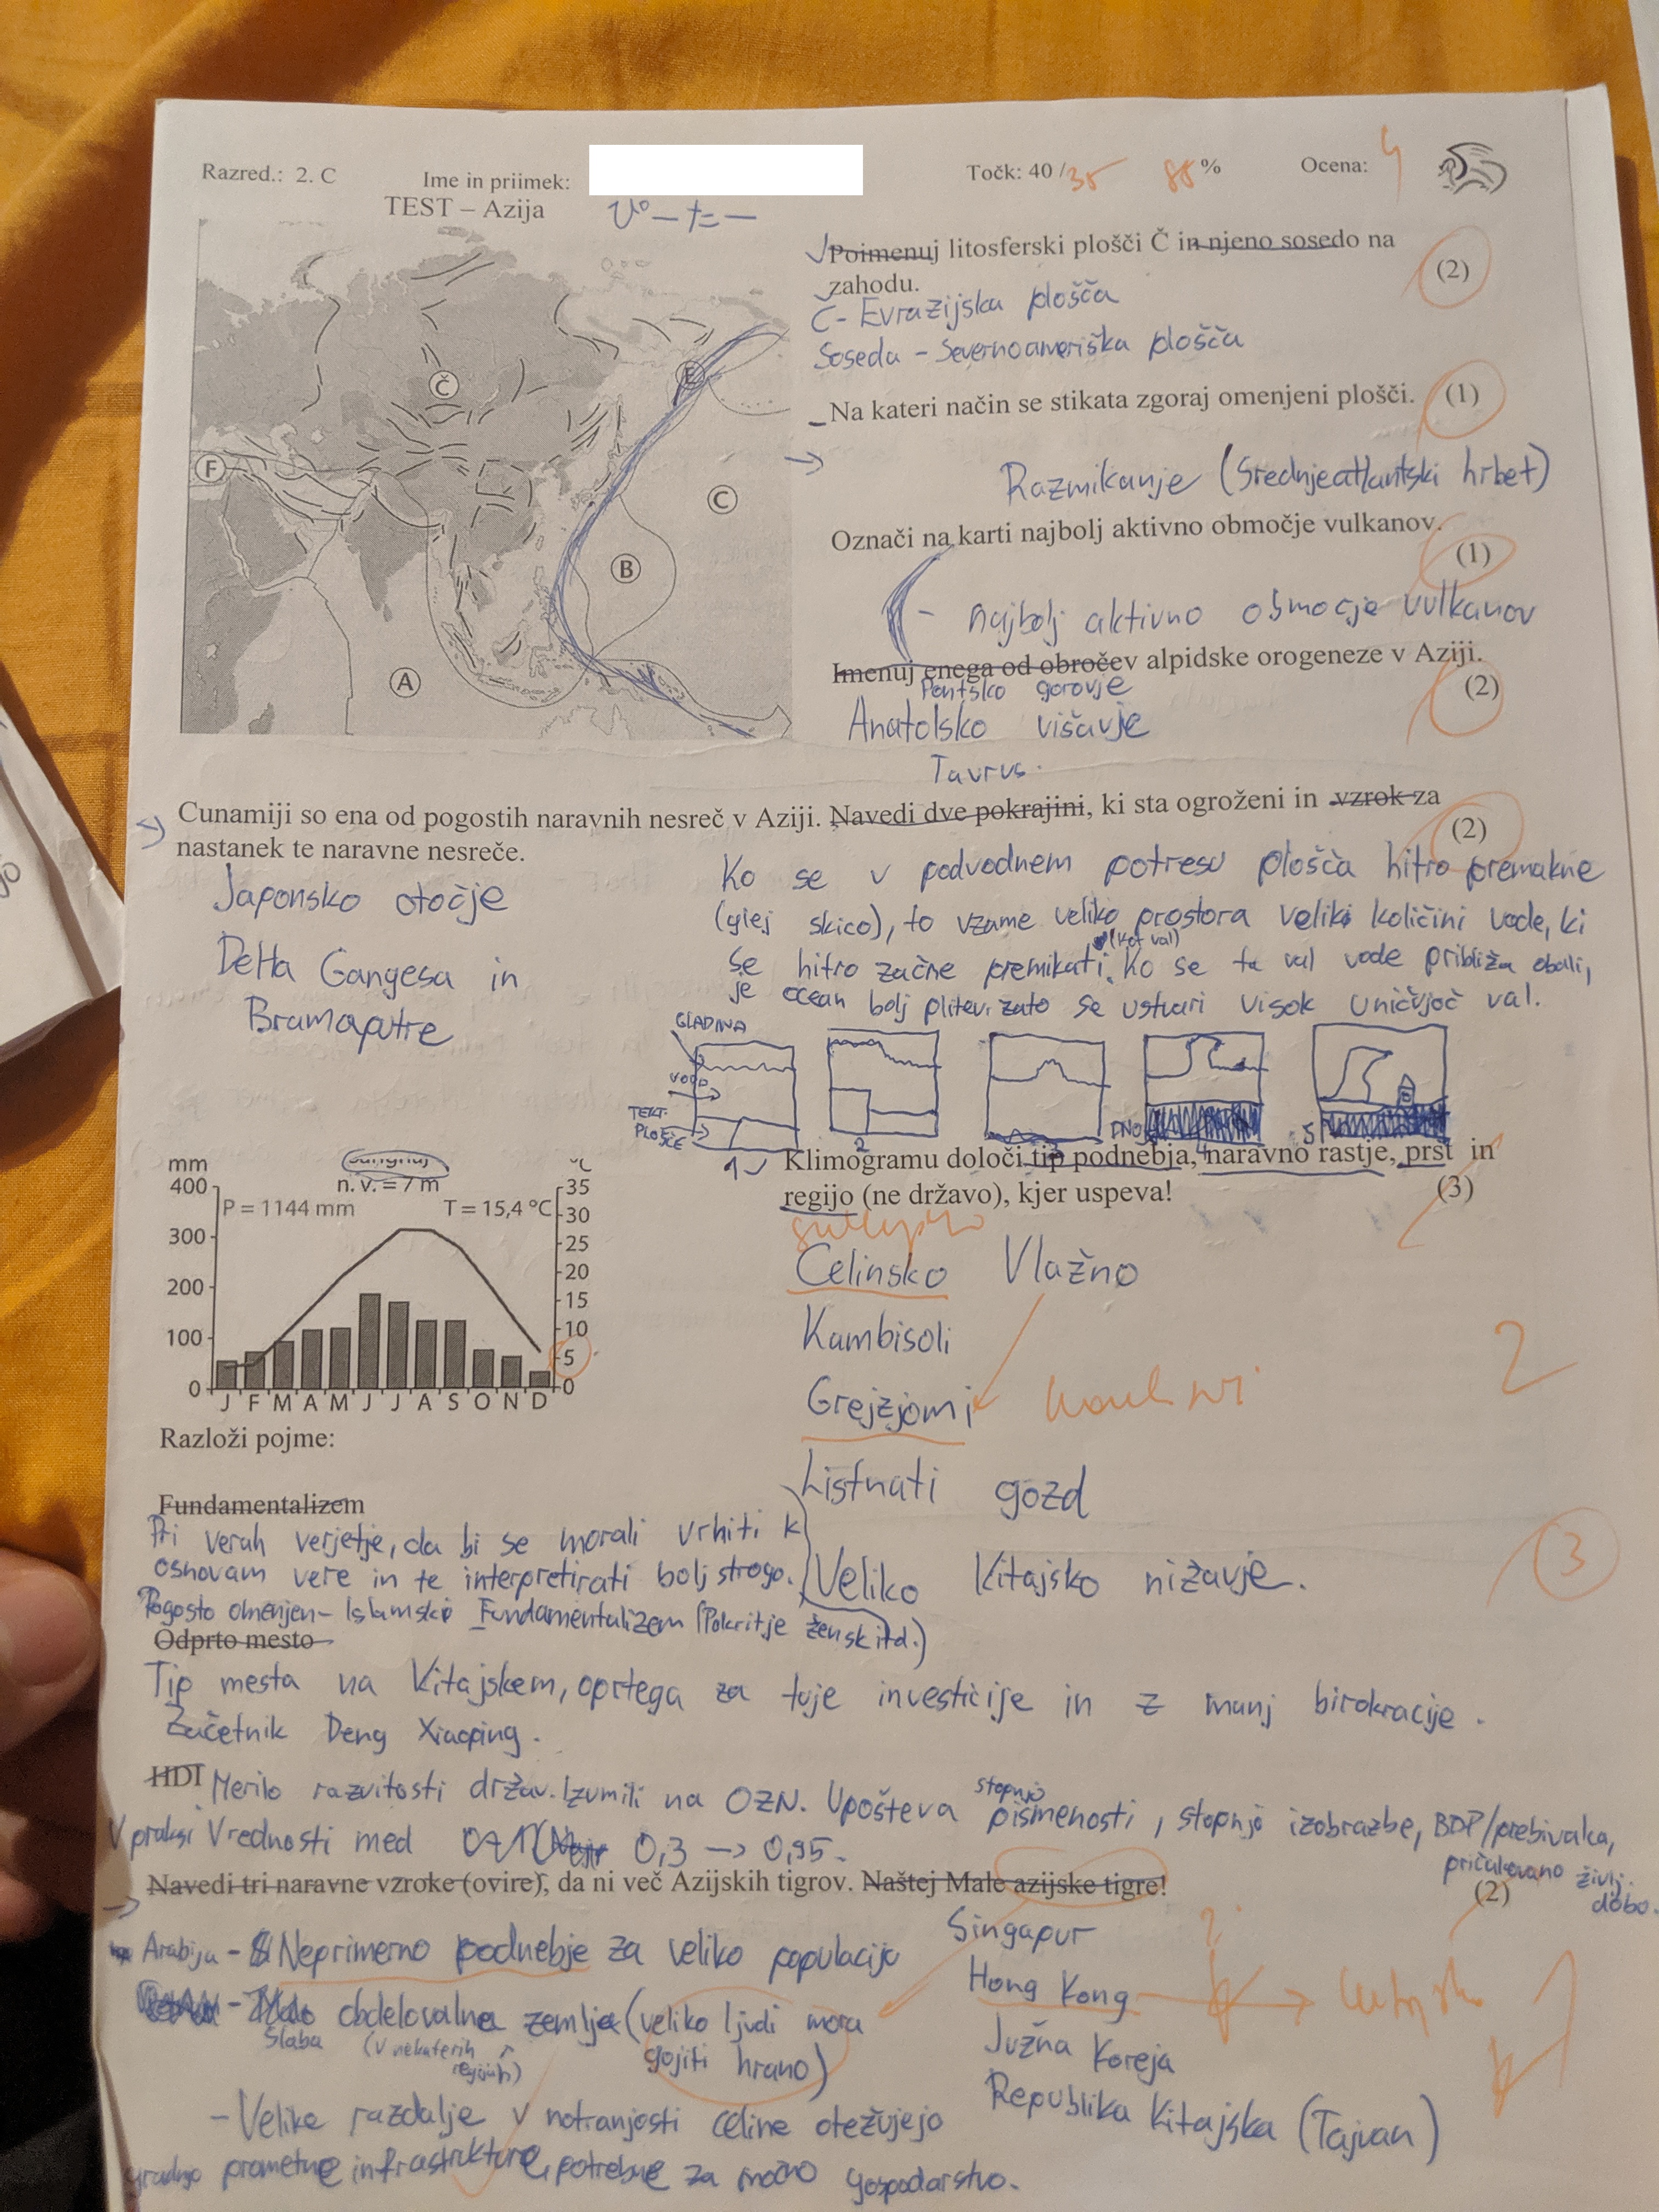 Razred.: 2. C
Ime in priimek:
Točk: 40 /35
88 %
Ocena: 4
TEST – Azija
Poimenuj litosferski plošči Č in njeno sosedo na
zahodu.
(2)
Č- Evrazijska plošča
Soseda - Severnoameriška plošča
Na kateri način se stikata zgoraj omenjeni plošči.
(1)
Razmikanje (Srednjeatlantski hrbet)
Označi na karti najbolj aktivno območje vulkanov.
(1)
- najbolj aktivno obmocje vulkanov
Imenuj enega od obročev alpidske orogeneze v Aziji.
(2)
Pontsko gorovje
Anatolsko višavje
Taurus.
Č
E
F
C
B
A
Cunamiji so ena od pogostih naravnih nesreč v Aziji. Navedi dve pokrajini, ki sta ogroženi in vzrok za
nastanek te naravne nesreče.
(2)
Japonsko otočje
Delta Gangesa in
Bramaputre
Ko se v podvodnem potresu plošča hitro premakne
(glej skico), to vzame veliko prostora veliki količini vode, ki
se hitro začne premikati (kot val). Ko se ta val vode približa obali,
je ocean bolj plitev, zato se ustvari visok uničujoč val.
GLADINA
VODA
TEKT.
PLOŠČE
DNO
1
2
3
4
5
mm
400
300
200
100
0
n. v. = 7 m
P = 1144 mm
T = 15,4 °C
°C
35
30
25
20
15
10
5
0
J F M A M J J A S O N D
Klimogramu določi tip podnebja, naravno rastje, prst in
regijo (ne državo), kjer uspeva!
(3)
Celinsko Vlažno
Kambisoli
Grejzjomi
Listnati gozd
Veliko Kitajsko nižavje.
2
3
Razloži pojme:
Fundamentalizem
Pri verah verjetje, da bi se morali vrhiti k
osnovam vere in te interpretirati bolj strogo.
Pogosto omenjen - Islamski Fundamentalizem (Pokritje žensk itd.)
Odprto mesto
Tip mesta na Kitajskem, oprtega za tuje investicije in z manj birokracije.
Začetnik Deng Xiaoping.
HDI Merilo razvitosti držav. Izumili na OZN. Upošteva stopnjo pismenosti, stopnjo izobrazbe, BDP/prebivalca,
pričakovano življ. dobo.
V praksi Vrednosti med 0,3 → 0,95.
Navedi tri naravne vzroke (ovire), da ni več Azijskih tigrov. Naštej Male azijske tigre!
(2)
Arabija - Neprimerno podnebje za veliko populacijo
- Slaba obdelovalna zemlja (veliko ljudi mora
(V nekaterih regijah)
gojiti hrano)
- Velike razdalje v notranjosti celine otežujejo
gradnjo prometne infrastrukture, potrebne za močno gospodarstvo.
Singapur
Hong Kong
Južna Koreja
Republika Kitajska (Tajvan)